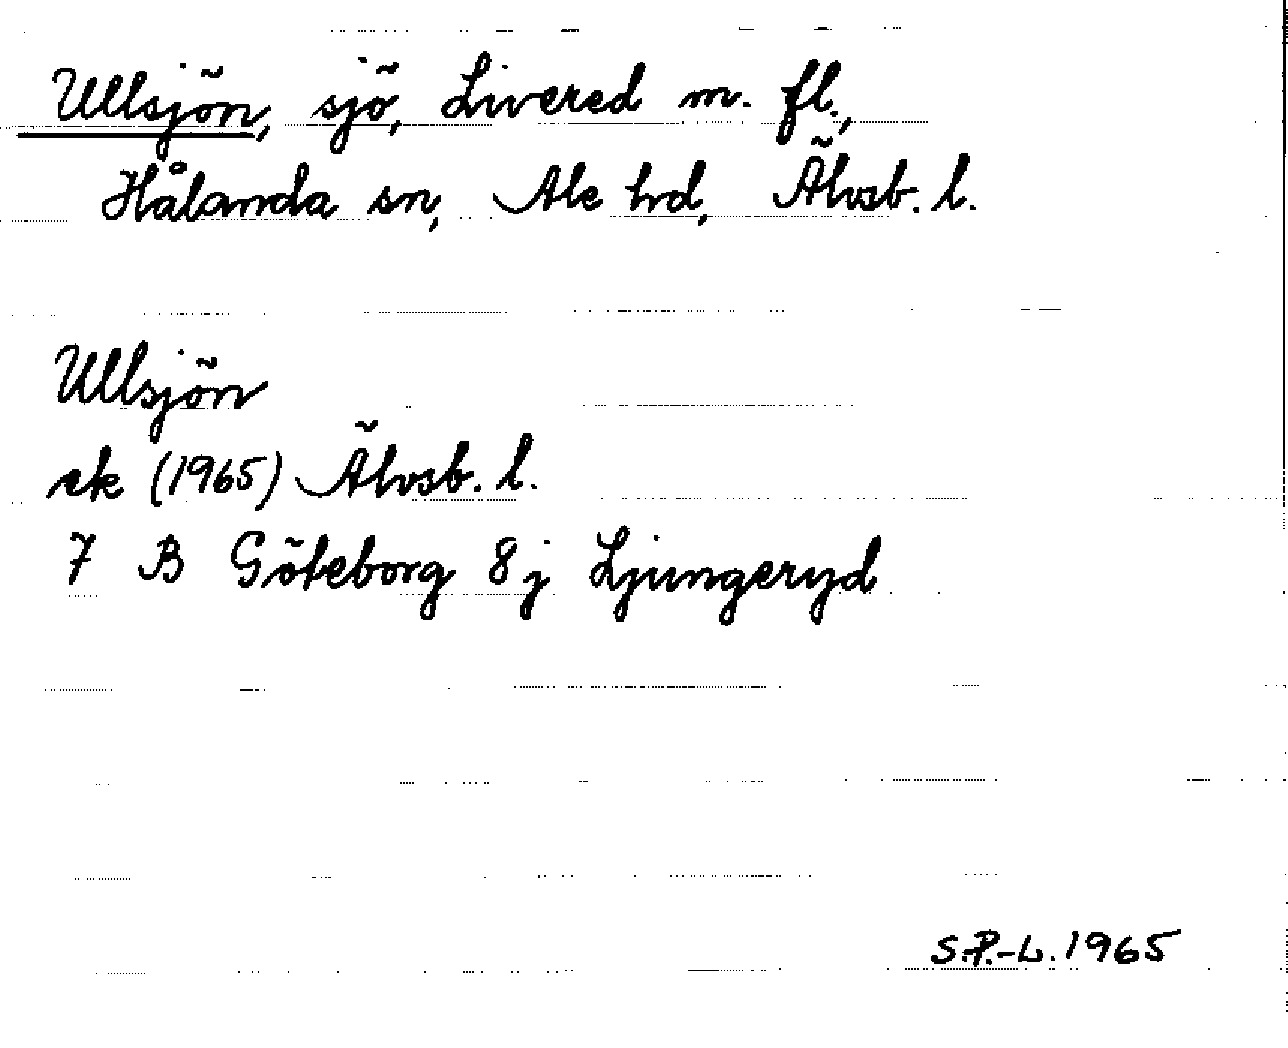 Ullsjön, sjö, Livered m. fl.,
Hålanda sn, Ale hd, Älvsb. l.
Ullsjön
ek (1965) Älvsb. l.
7 B Göteborg 8 j Ljungeryd
S.P.-L. 1965